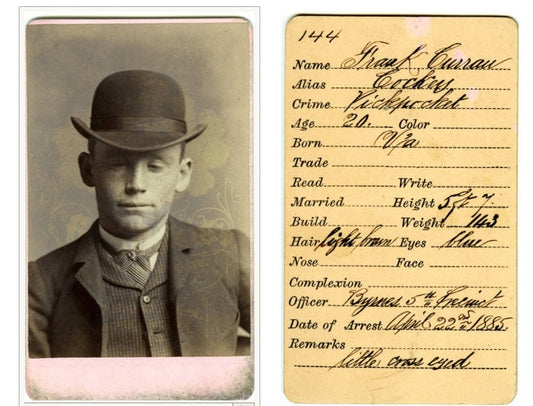 144
Name Frank Curran
Alias Cockey
Crime Pickpocket
Age 20. Color
Born Va
Trade
Read Write
Married Height 5 ft 7
Build Weight 143
Hair light brown Eyes blue
Nose Face
Complexion
Officer Byrnes 5th Precinct
Date of Arrest April 22nd 1885
Remarks
little cross eyed